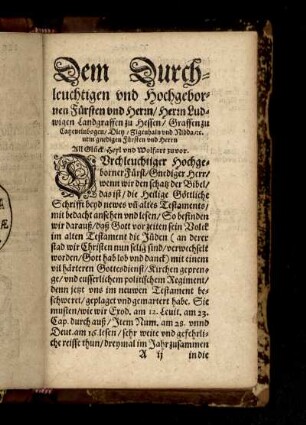 Dem Durch-
leuchtigen vnd Hochgebor-
nen Fürsten vnd Herrn/ Herrn Lud-
wigen Landgraffen zu Hessen/ Graffen zu
Catzenelnbogen/ Dietz/ Zigenhain vnd Nidda etc.
mein gnedigen Fürsten vnd Herrn
All Glück/ Heyl vnd Wolfart zuvor.
DVrchleuchtiger Hochge-
borner Fürst/ Gnediger Herr/
wenn wir den schatz der Bibel/
das ist/ die Heilige Göttliche
Schrifft beyd newes vñ altes Testaments/
mit bedacht ansehen vnd lesen/ So befinden
wir darauß/ daß Gott vor zeiten sein Volck
im alten Testament die Jüden (an derer
stad wir Christen nun selig sind/ verwechselt
worden/ Gott hab lob vnd danck) mit einem
vil härteren Gottesdienst/ Kirchen gepreng-
ge/ vnd eusserlichem politischem Regiment/
denn jetzt vns im neuwen Testament be-
schweret/ geplaget vnd gemartert habe. Sie
musten/ wie wir Exod. am 12. Leuit. am 23.
Cap. durch auß/ Item Num. am 28. vnnd
Deut. am 16. lesen/ sehr weite vnd gefehrli-
che reisse thun/ dreymal im Jahr zusammen
A ij in die